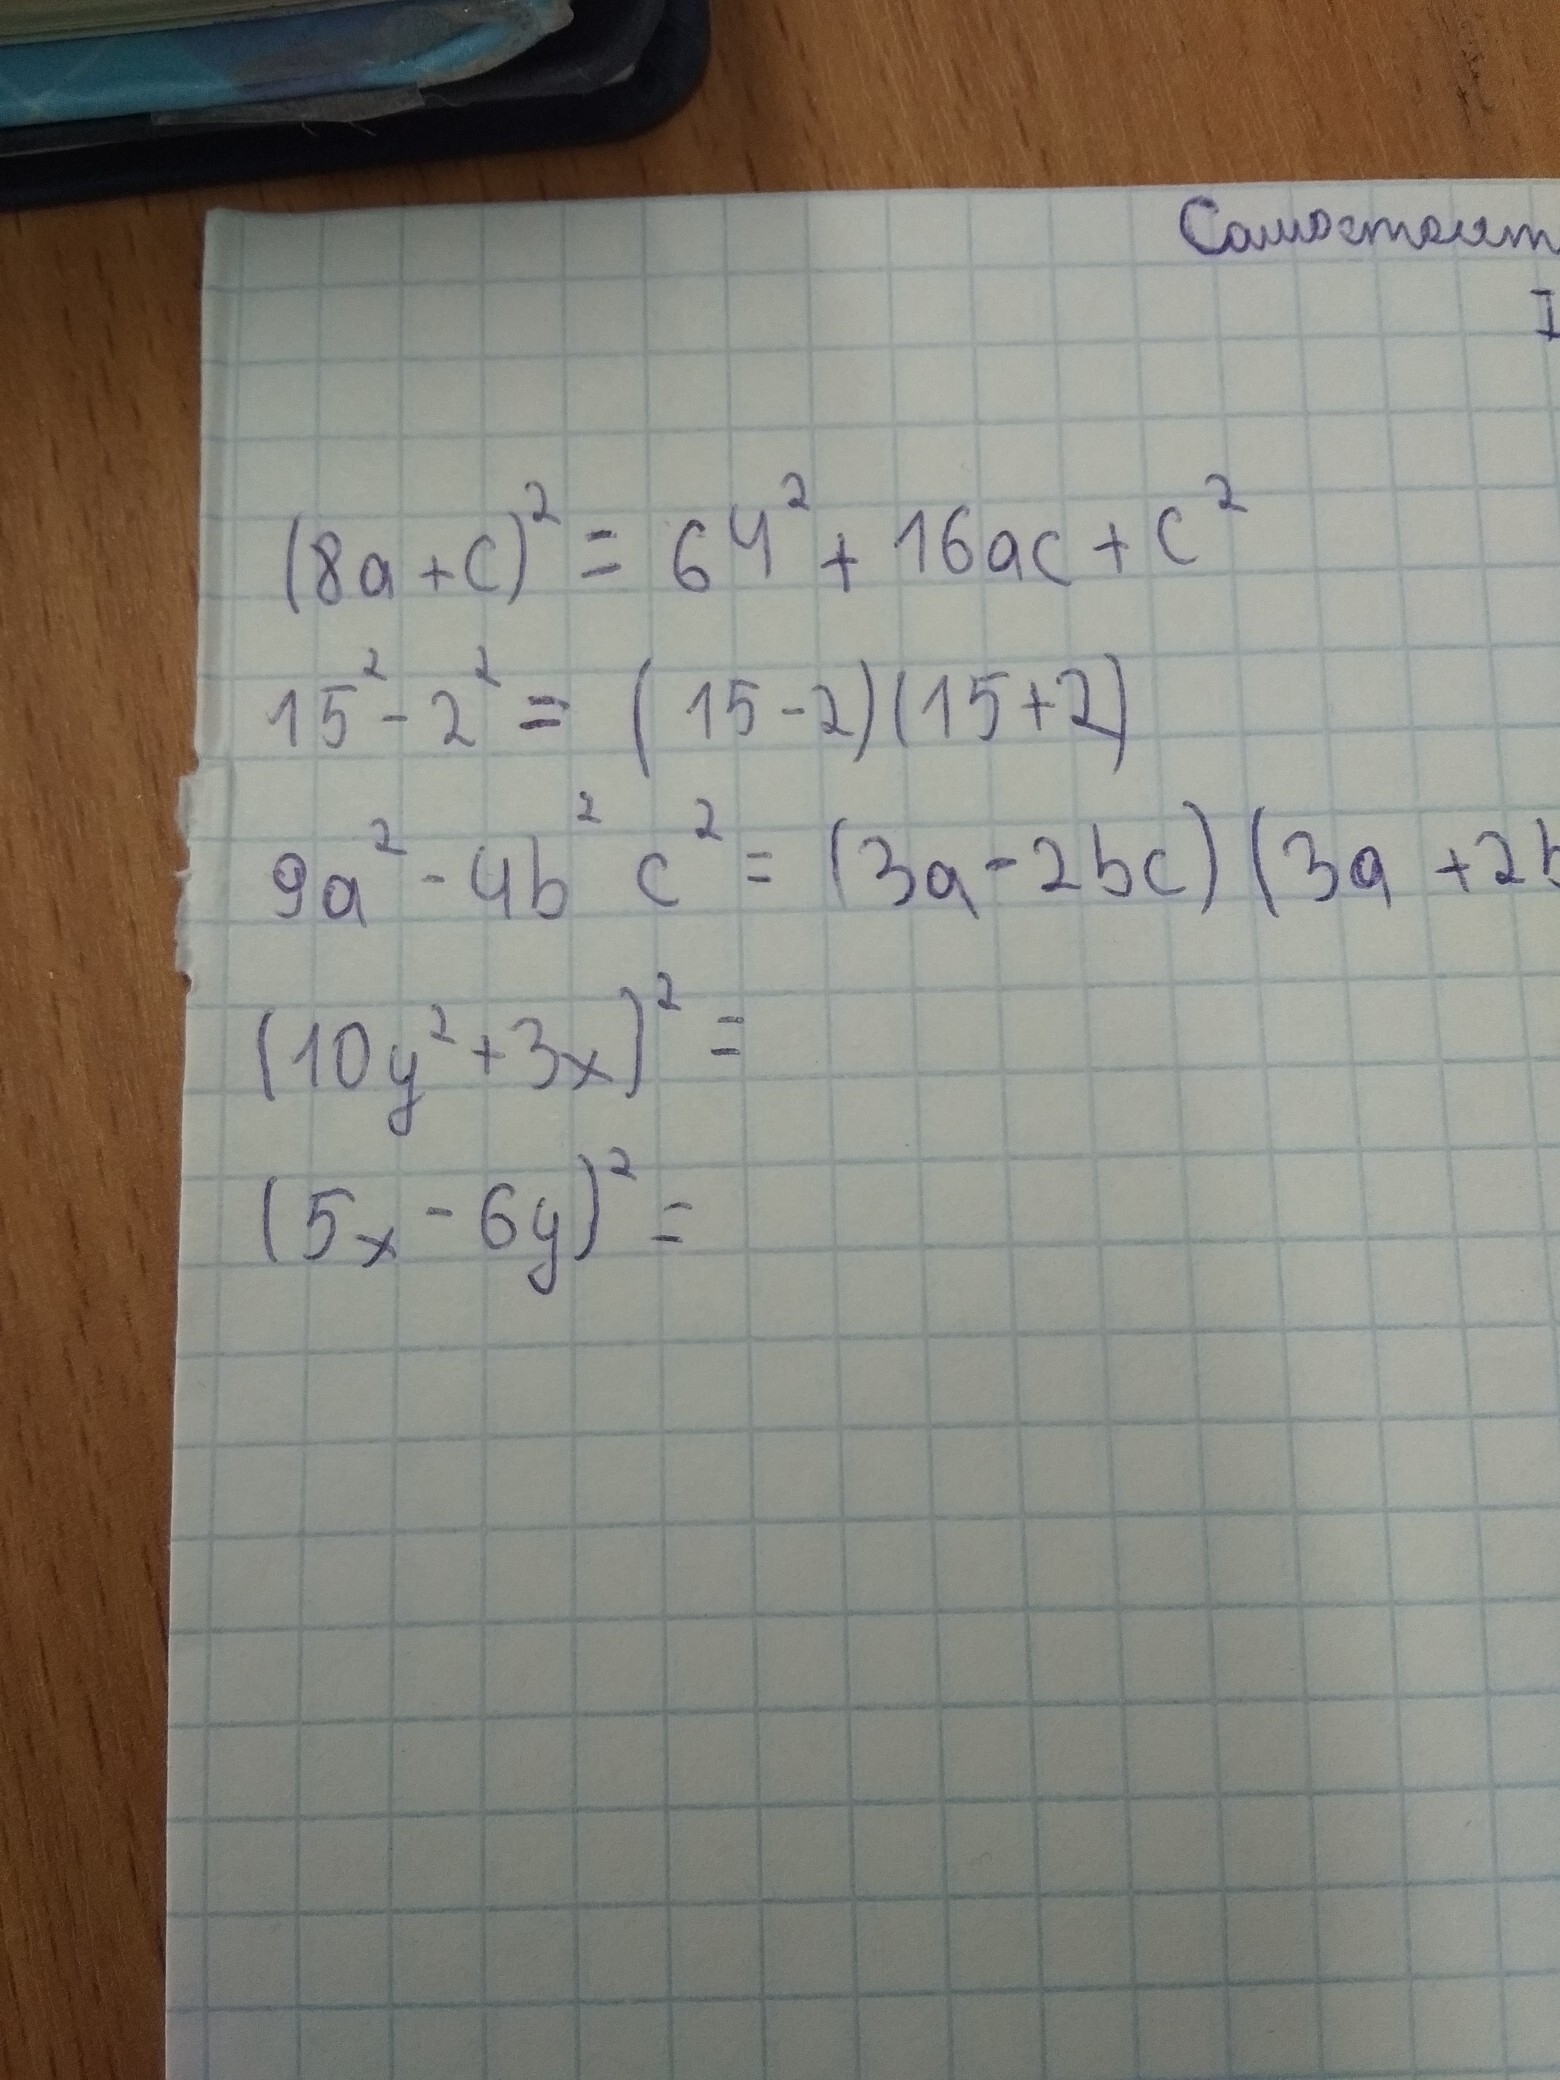 Самостоят
I
(8a+c)² = 64² + 16ac + c²
15² - 2² = (15-2)(15+2)
9a² - 4b² c² = (3a-2bc)(3a+2b
(10y²+3x)² =
(5x-6y)² =